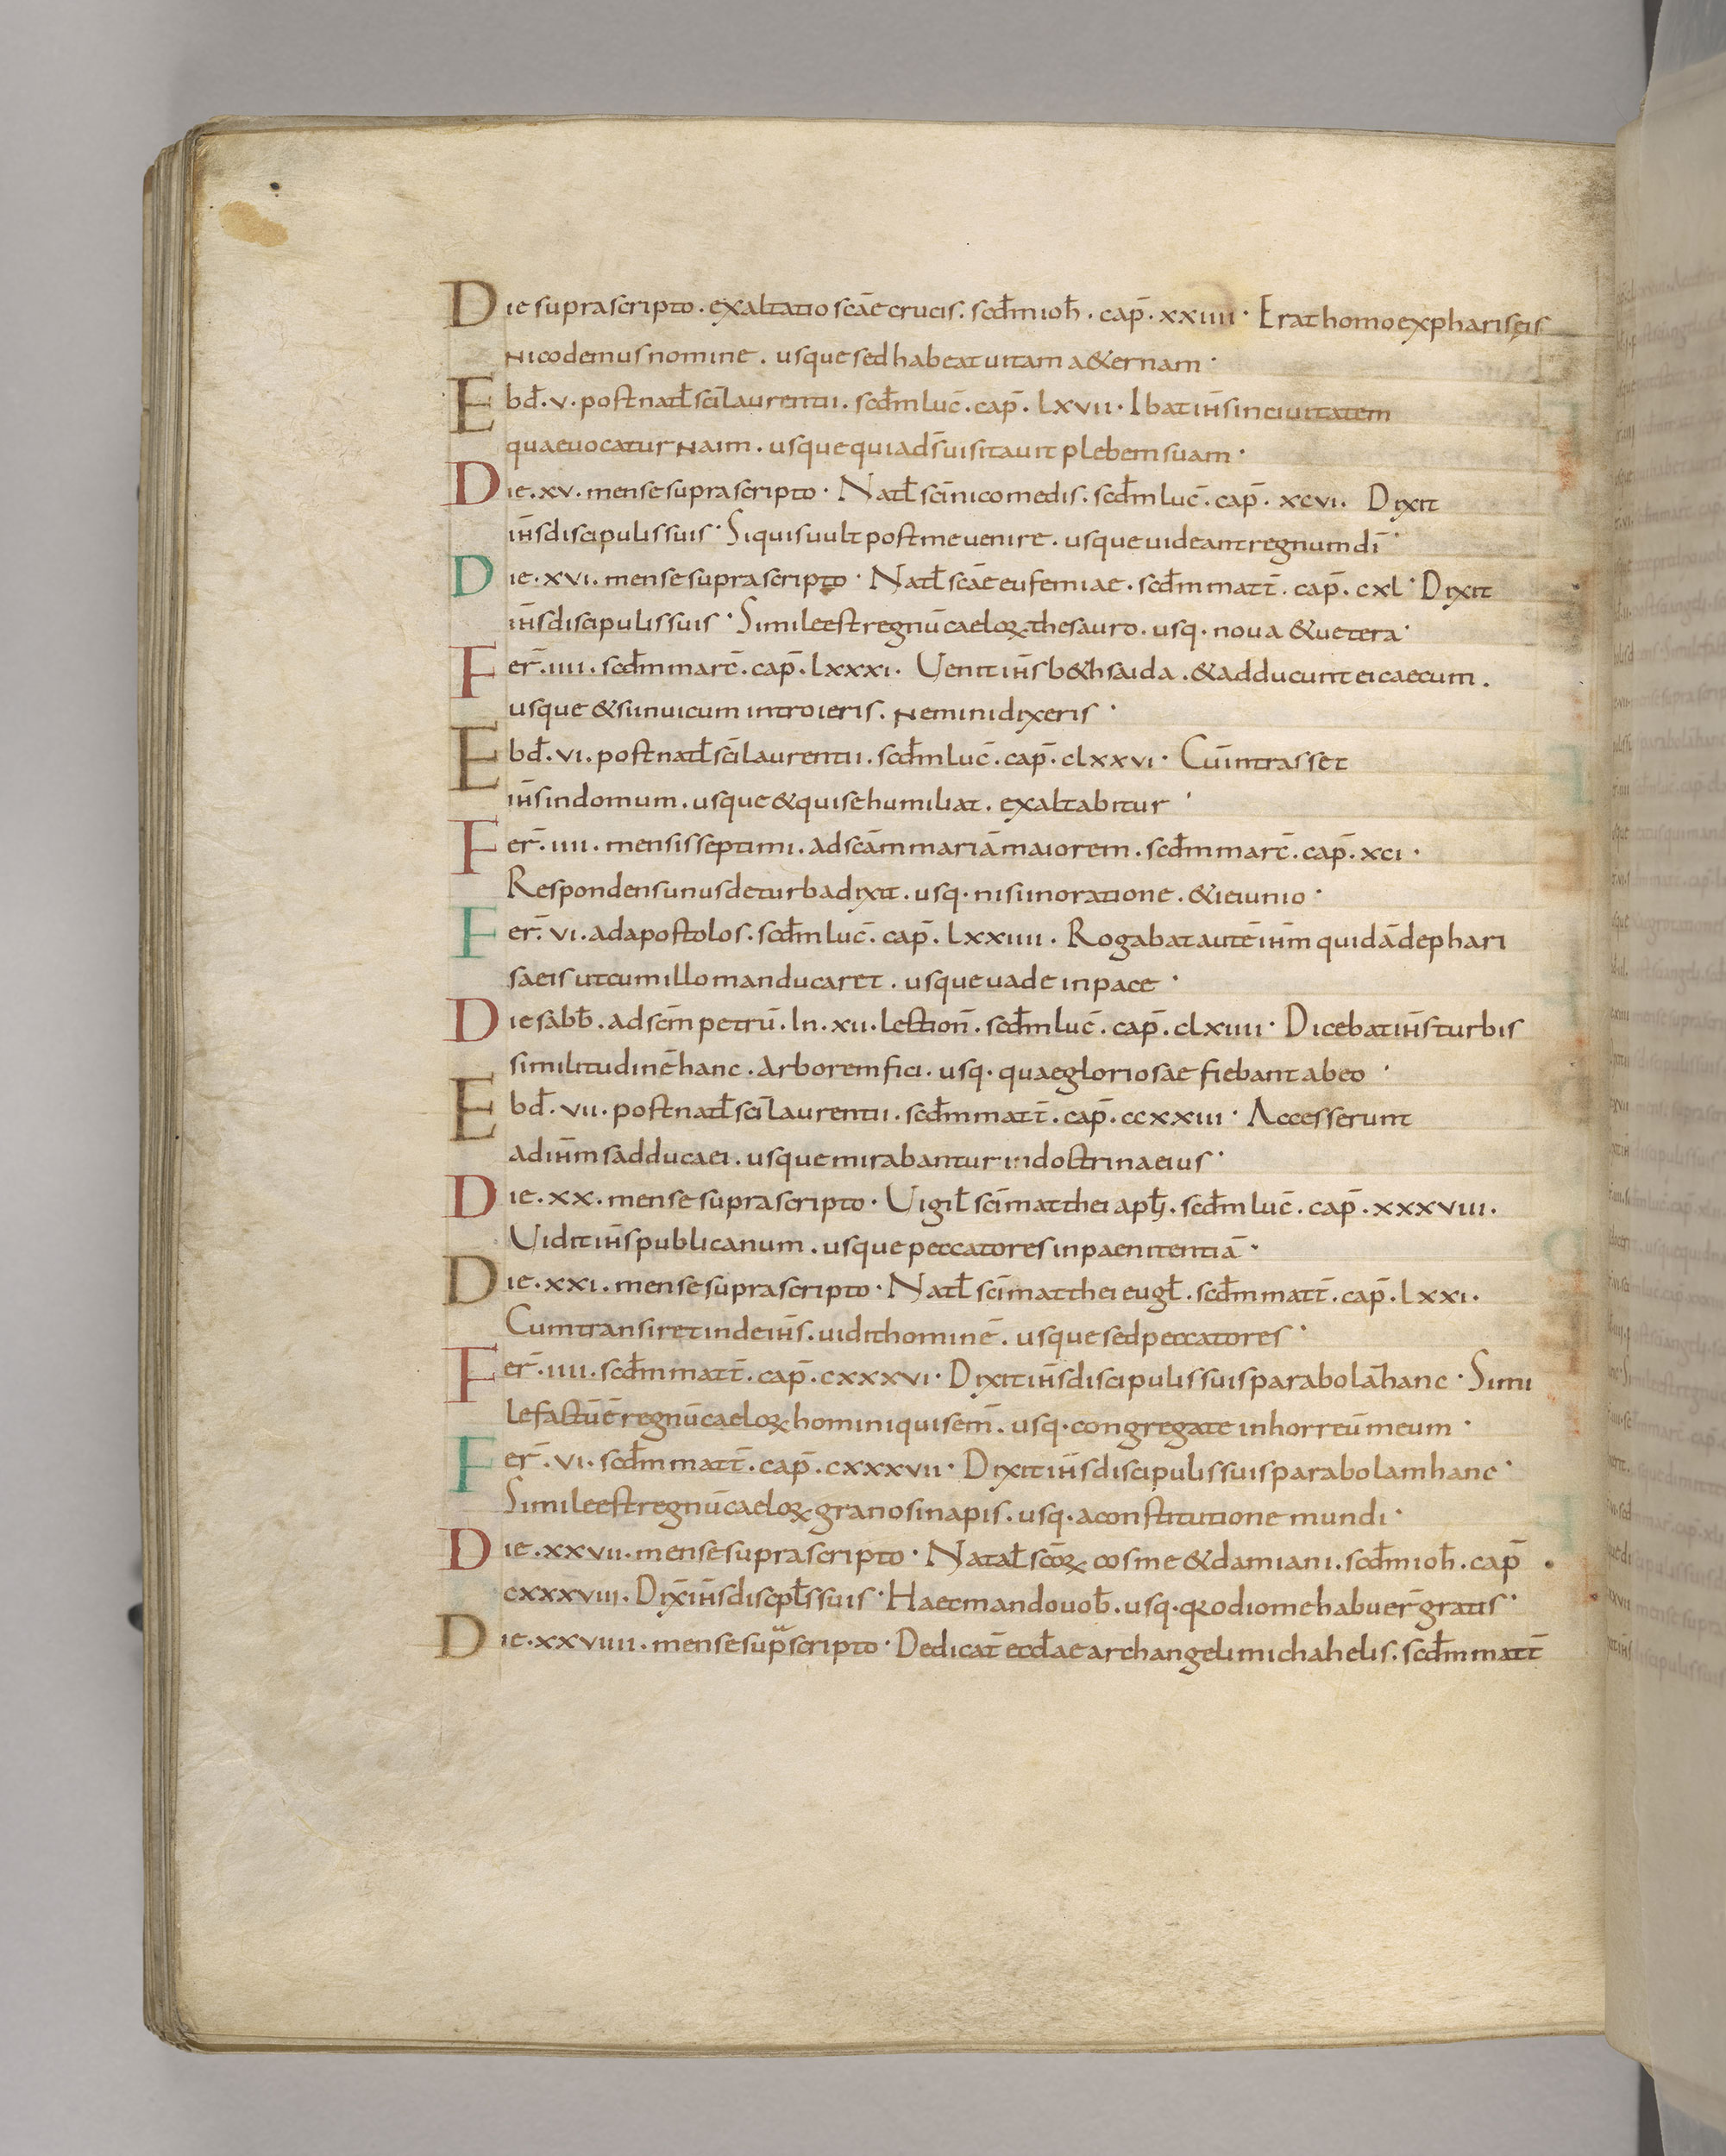 Die suprascripto · exaltatio scāe crucis · scd̄m ioh̄ · cap̄ · xxiiii · Erat homo ex pharisęis
nicodemus nomine · usque sed habeat uitam a&ernam ·
Ebd̄ · v · post natl̄ sc̄i laurentii · scd̄m luc̄ · cap̄ · lxvii · Ibat ih̄s in ciuitatem
quae uocatur naim · usque quia d̄s uisitauit plebem suam ·
Die · xv · mense suprascripto · Natl̄ sc̄i nicomedis · scd̄m luc̄ · cap̄ · xcvi · Dixit
ih̄s discipulis suis · Si quis uult post me uenire · usque uideant regnum dī ·
Die · xvi · mense suprascripto · Natl̄ scāe eufemiae · scd̄m matt̄ · cap̄ · cxl · Dixit
ih̄s discipulis suis · Simile est regnū caeloꝝ thesauro · usq · noua & uetera ·
Fer̄ · iiii · scd̄m marc̄ · cap̄ · lxxxi · Uenit ih̄s b&hsaida · & adducunt ei caecum ·
usque & si in uicum introieris · nemini dixeris ·
Ebd̄ · vi · post natl̄ sc̄i laurentii · scd̄m luc̄ · cap̄ · clxxvi · Cū intrasset
ih̄s in domum · usque & qui se humiliat · exaltabitur ·
Fer̄ · iiii · mensis septimi · ad scām mariā maiorem · scd̄m marc̄ · cap̄ · xci ·
Respondens unus de turba dixit · usq · nisi in oratione · & ieiunio ·
Fer̄ · vi · ad apostolos · scd̄m luc̄ · cap̄ · lxxiiii · Rogabat autē ih̄m quidā de phari
saeis ut cum illo manducaret · usque uade in pace ·
Die sabb̄ · ad sc̄m petrū · In · xii · lection̄ · scd̄m luc̄ · cap̄ · clxiiii · Dicebat ih̄s turbis
similitudinē hanc · Arborem fici · usq · quae gloriosae fiebant ab eo ·
Ebd̄ · vii · post natl̄ sc̄i laurentii · scd̄m matt̄ · cap̄ · ccxxiii · Accesserunt
ad ih̄m sadducaei · usque mirabantur in doctrina eius ·
Die · xx · mense suprascripto · Uigil̄ sc̄i matthei apl̄i · scd̄m luc̄ · cap̄ · xxxviii ·
Uidit ih̄s publicanum · usque peccatores in paenitentiā ·
Die · xxi · mense suprascripto · Natl̄ sc̄i matthei eugl̄ · scd̄m matt̄ · cap̄ · lxxi ·
Cum transiret inde ih̄s · uidit hominē · usque sed peccatores ·
Fer̄ · iiii · scd̄m matt̄ · cap̄ · cxxxvi · Dixit ih̄s discipulis suis parabolā hanc · Simi
le factū ē regnū caeloꝝ homini qui sem̄ · usq · congregate in horreū meum ·
Fer̄ · vi · scd̄m matt̄ · cap̄ · cxxxvii · Dixit ih̄s discipulis suis parabolam hanc ·
Simile est regnū caeloꝝ grano sinapis · usq · a constitutione mundi ·
Die · xxvii · mense suprascripto · Natal̄ scōꝝ cosme & damiani · scd̄m ioh̄ · cap̄ ·
cxxxviii · Dix̄ ih̄s discpl̄s suis · Haec mando uob̄ · usq · qꝛ odio me habuer̄ gratis ·
Die · xxviiii · mense sup̄scripto · Dedicat̄ eccl̄ae archangeli michahelis · scd̄m matt̄